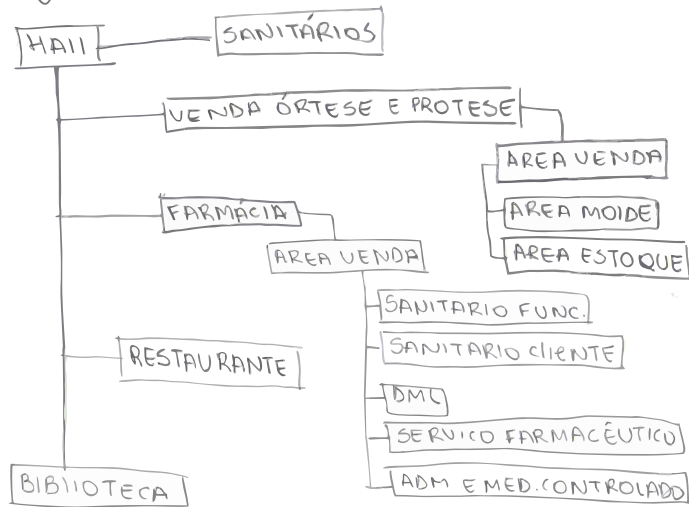 HAll
SANITÁRIOS
VENDA ÓRTESE E PROTESE
AREA VENDA
AREA MOlDE
AREA ESTOQUE
FARMÁCIA
AREA VENDA
SANITARIO FUNC.
SANITARIO CliENTE
DML
SERVICO FARMACÊUTICO
ADM E MED. CONTROLADO
RESTAURANTE
BIBlIOTECA